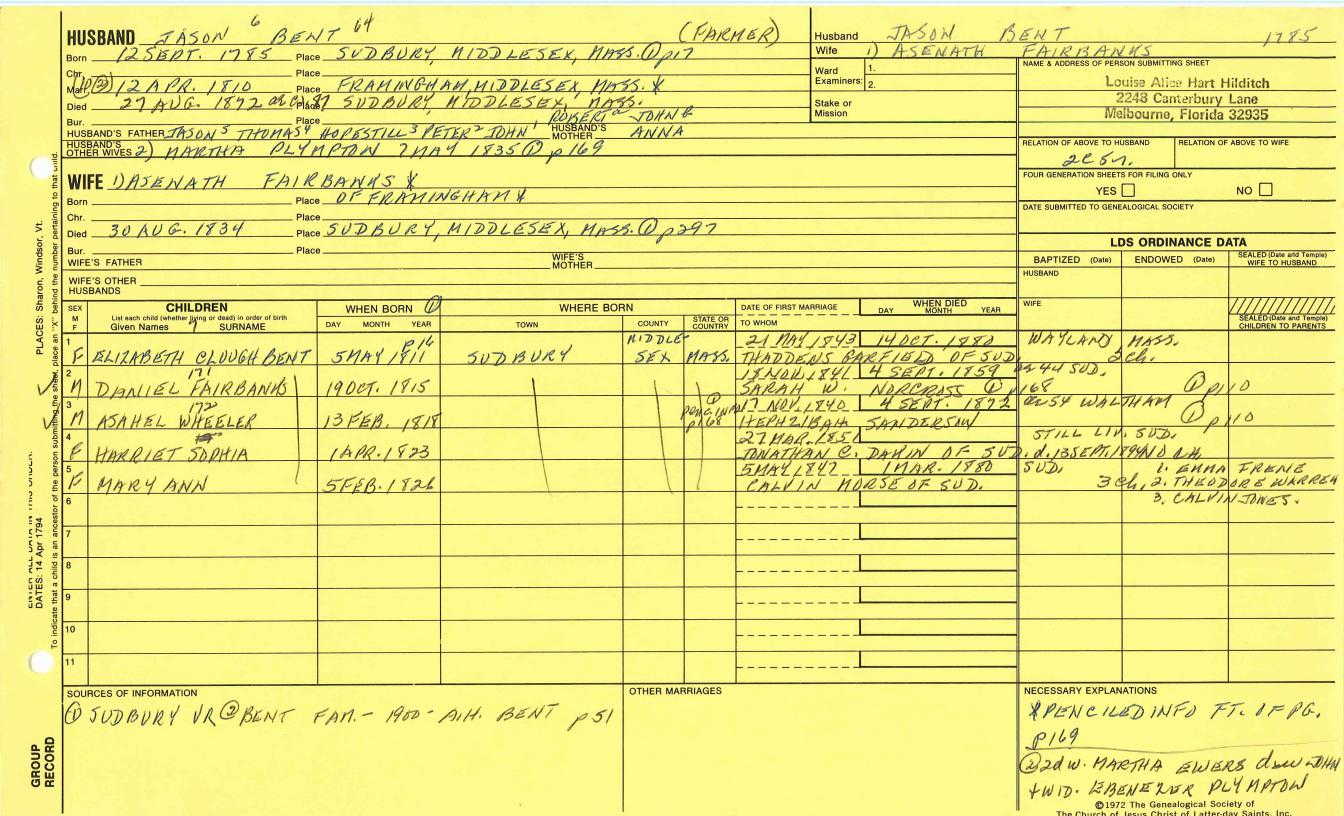 HUSBAND JASON 6 BENT 64 (FARMER)
Born 12 SEPT. 1785 Place SUDBURY, MIDDLESEX, MASS. ① p17
Chr. Place
Marr. ② 12 APR. 1810 Place FRAMINGHAM, MIDDLESEX, MASS. X
Died 27 AUG. 1872 Place SUDBURY, MIDDLESEX, MASS.
Bur. Place ROBERT JOHN
HUSBAND'S FATHER JASON 5 THOMAS 4 HOPESTILL 3 PETER 2 JOHN 1 HUSBAND'S MOTHER ANNA
HUSBAND'S OTHER WIVES 2) MARTHA PLYMPTON 7 MAY 1835 ① p169
WIFE 1) ASENATH FAIRBANKS X
Born Place OF FRAMINGHAM X
Chr. Place
Died 30 AUG. 1834 Place SUDBURY, MIDDLESEX, MASS. ① p297
Bur. Place
WIFE'S FATHER WIFE'S MOTHER
WIFE'S OTHER HUSBANDS
Husband JASON BENT 1785
Wife 1) ASENATH FAIRBANKS
Ward Examiners: 1. 2.
Stake or Mission
NAME & ADDRESS OF PERSON SUBMITTING SHEET
Louise Alice Hart Hilditch
2248 Canterbury Lane
Melbourne, Florida 32935
RELATION OF ABOVE TO HUSBAND RELATION OF ABOVE TO WIFE
2C5r.
FOUR GENERATION SHEETS FOR FILING ONLY
YES NO
DATE SUBMITTED TO GENEALOGICAL SOCIETY
LDS ORDINANCE DATA
BAPTIZED (Date) ENDOWED (Date) SEALED (Date and Temple) WIFE TO HUSBAND
HUSBAND
WIFE
SEALED (Date and Temple) CHILDREN TO PARENTS
SEX M F CHILDREN List each child (whether living or dead) in order of birth Given Names 7 SURNAME
WHEN BORN ① DAY MONTH YEAR
WHERE BORN TOWN COUNTY STATE OR COUNTRY
DATE OF FIRST MARRIAGE TO WHOM
WHEN DIED DAY MONTH YEAR
1 p16 MIDDLE- 21 MAY, 1843 14 OCT. 1880 WAYLAND MASS.
F ELIZABETH CLOUGH BENT 5 MAY 1811 SUDBURY SEX MASS. THADDENS GARFIELD OF SUD. 2ch.
2 171 18 NOV. 1841 4 SEPT. 1859 ae 44 SUD.
M DANIEL FAIRBANKS 19 OCT. 1815 SARAH W. NORCROSS ① p168 ① p110
3 172 ① 17 NOV. 1840 4 SEPT. 1872 ae 54 WALTHAM
M ASAHEL WHEELER 13 FEB. 1818 p168 HEPHZIBAH SANDERSON ① p110
4 27 MAR. 1851 STILL LIV. SUD.
F HARRIET SOPHIA 1 APR. 1823 JONATHAN C. DAKIN OF SUD. d. 13 SEPT. 1894
5 5 MAY, 1847 1 MAR. 1880 SUD. 1. EMMA FRENE
F MARY ANN 5 FEB. 1826 CALVIN MORSE OF SUD. 3 ch. 2. THEODORE WARREN
3. CALVIN JONES.
6
7
8
9
10
11
SOURCES OF INFORMATION
① SUDBURY VR ② BENT FAM. - 1900 - A.H. BENT p 51
OTHER MARRIAGES
NECESSARY EXPLANATIONS
X PENCILED INFO FT. OF PG.
p169
② 2d w. MARTHA EWERS dau JOHN
+ WID. EBENEZER PLYMPTON
©1972 The Genealogical Society of
The Church of Jesus Christ of Latter-day Saints, Inc.
PLACES: Sharon, Windsor, Vt.
ENTER ALL DATA IN THIS ORDER:
DATES: 14 Apr 1794
To indicate that a child is an ancestor of the person submitting the sheet, place an "X" behind the number pertaining to that child.
GROUP RECORD